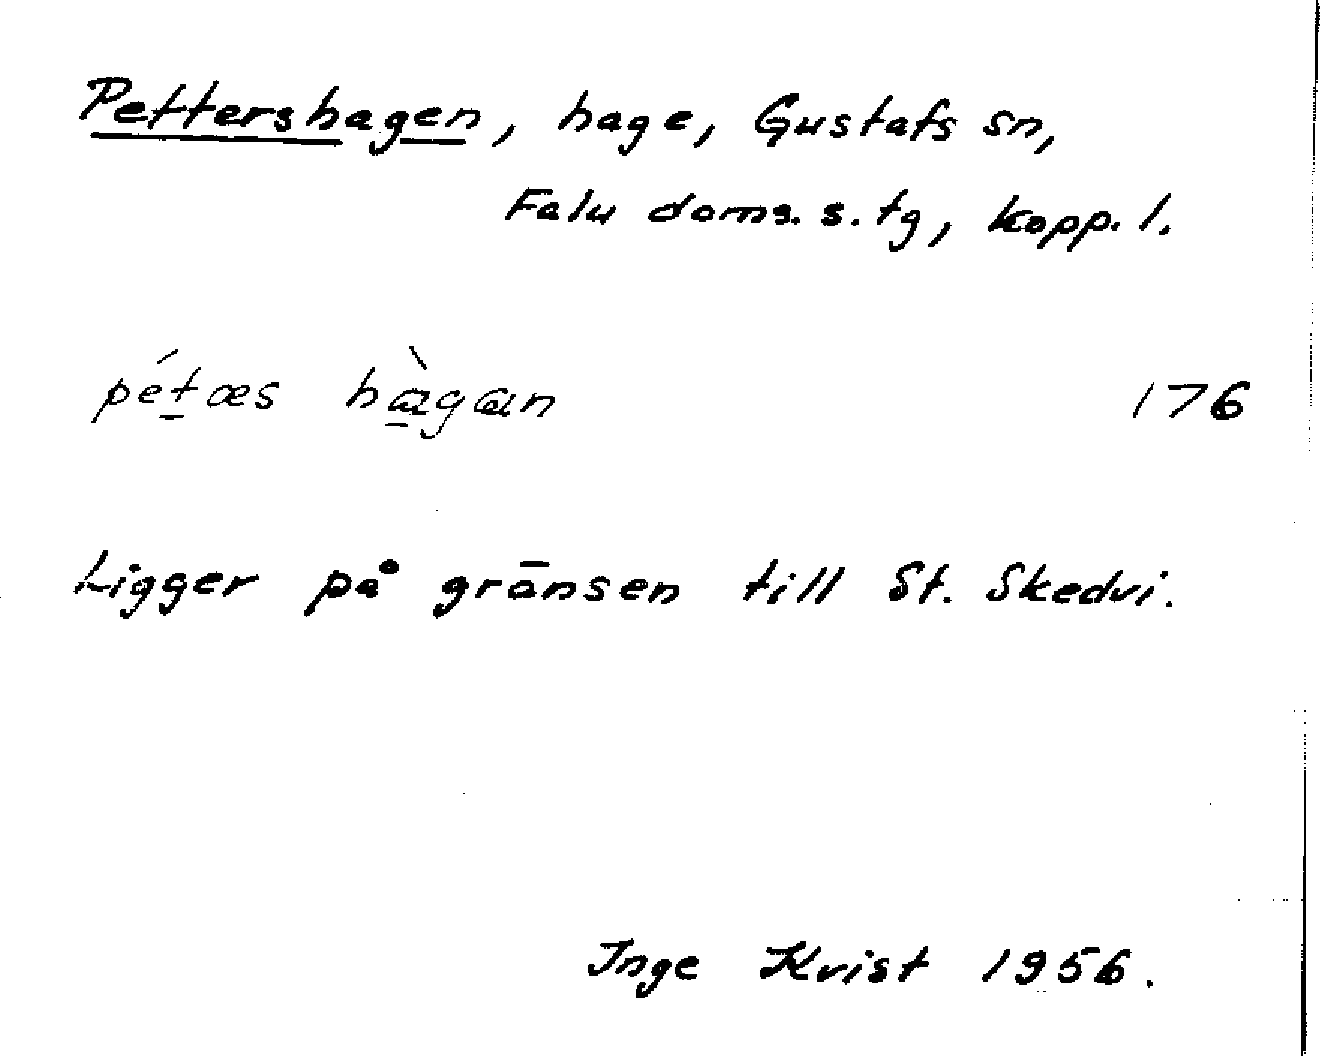 Pettershagen, hage, Gustafs sn,
Falu doms. s. tg, Kopp. l.
pét̲æs hà̲gan 176
Ligger på gränsen till St. Skedvi.
Inge Kvist 1956.